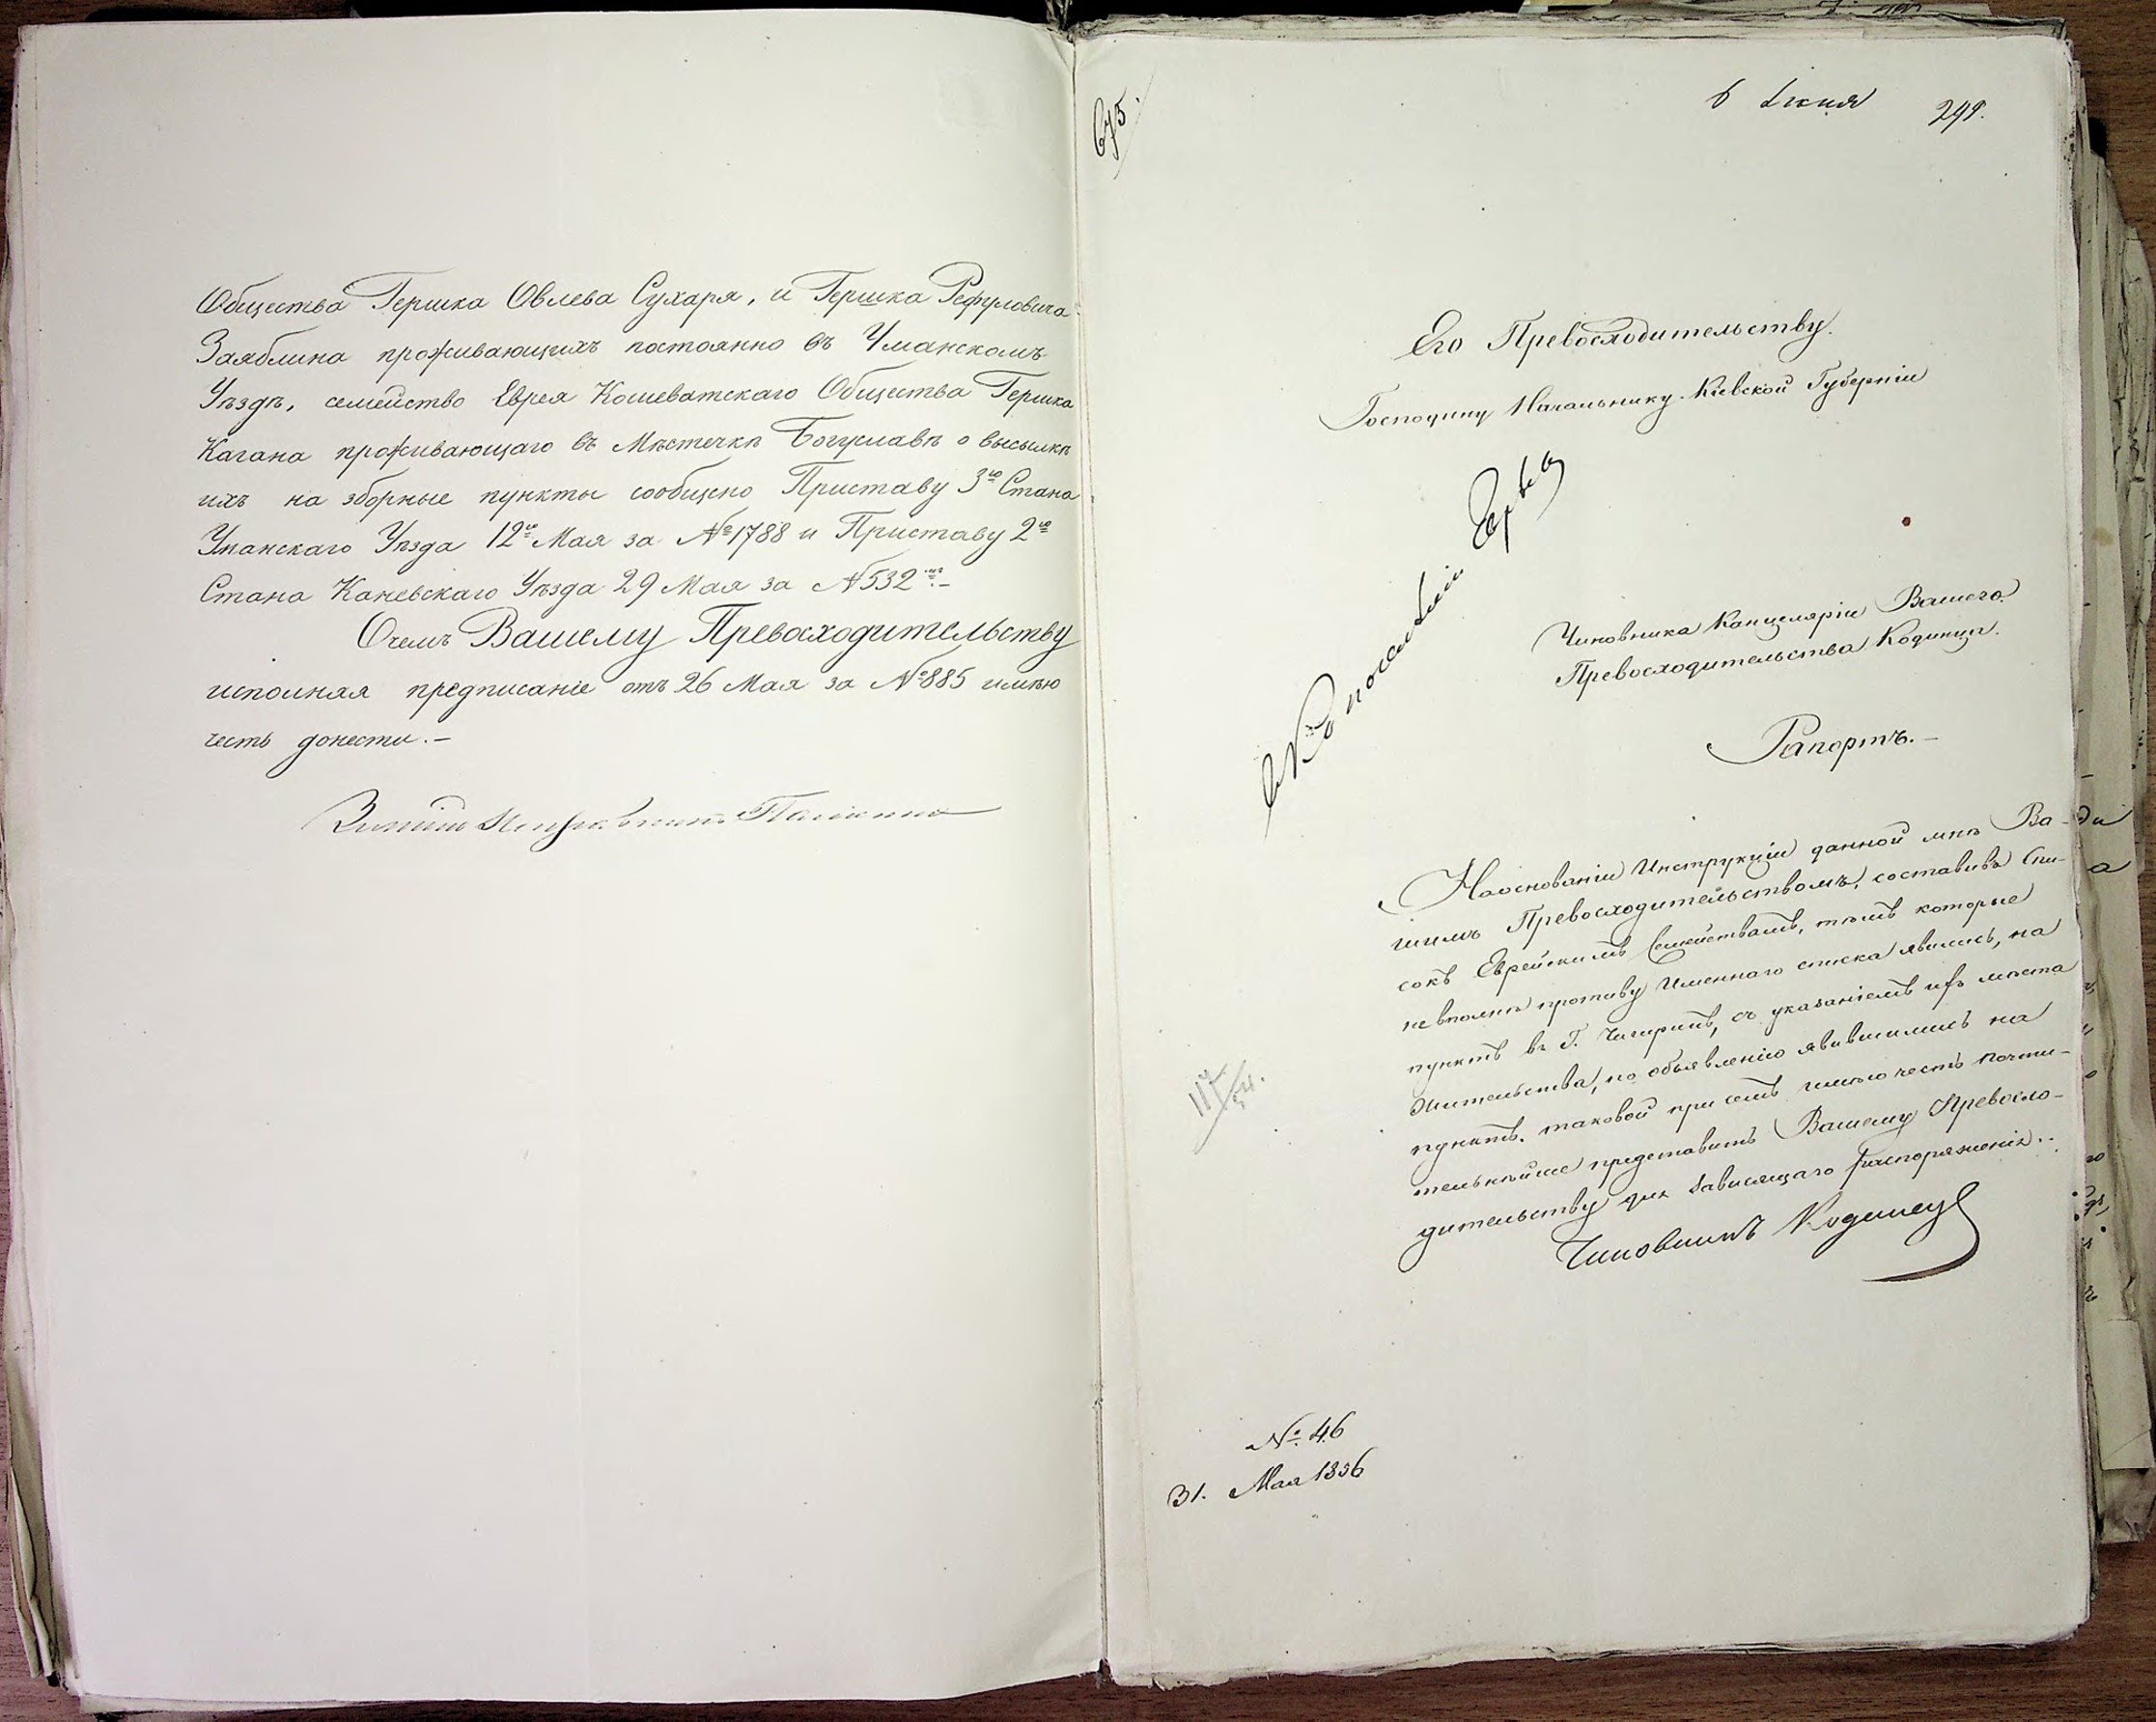 Общества Гершка Овлева Сухаря, и Гершка Рефуловича
Заяблина проживающихъ постоянно въ Уманскомъ
Уѣздѣ, семейство Еврея Кошеватскаго Общества Гершка
Кагана проживающаго въ Мѣстечкѣ Богуславѣ о высылкѣ
ихъ на зборные пункты сообщено Приставу 3го Стана
Уманскаго Уѣзда 12го Мая за № 1788 и Приставу 2го
Стана Каневскаго Уѣзда 29 Мая за № 532.-
Очемъ Вашему Превосходительству
исполняя предписаніе отъ 26 Мая за № 885 имѣю
честь донести.-
675.
6 Іюня
299.
Его Превосходительству.
Господину Начальнику Кіевской Губерніи
Чиновника Канцеляріи Вашего
Превосходительства Кодинца.
Рапортъ.-
Наоснованіи Инструкціи данной мнѣ Ва-
шимъ Превосходительствомъ, составивъ Спи-
сокъ Еврейскимъ Семействамъ, тѣмъ которые
невполнѣ противу Именнаго списка явились, на
пунктъ въ Г. Чигиринъ, съ указаніемъ ихъ мѣста
Жительства, по объявленію явившимися на
пунктъ. таковой при семъ имѣю честь почти-
тельнѣйше представить Вашему Превосхо-
дительству для зависящаго распоряженія..
Чиновникъ Кодинец
№ 46
31. Мая 1856